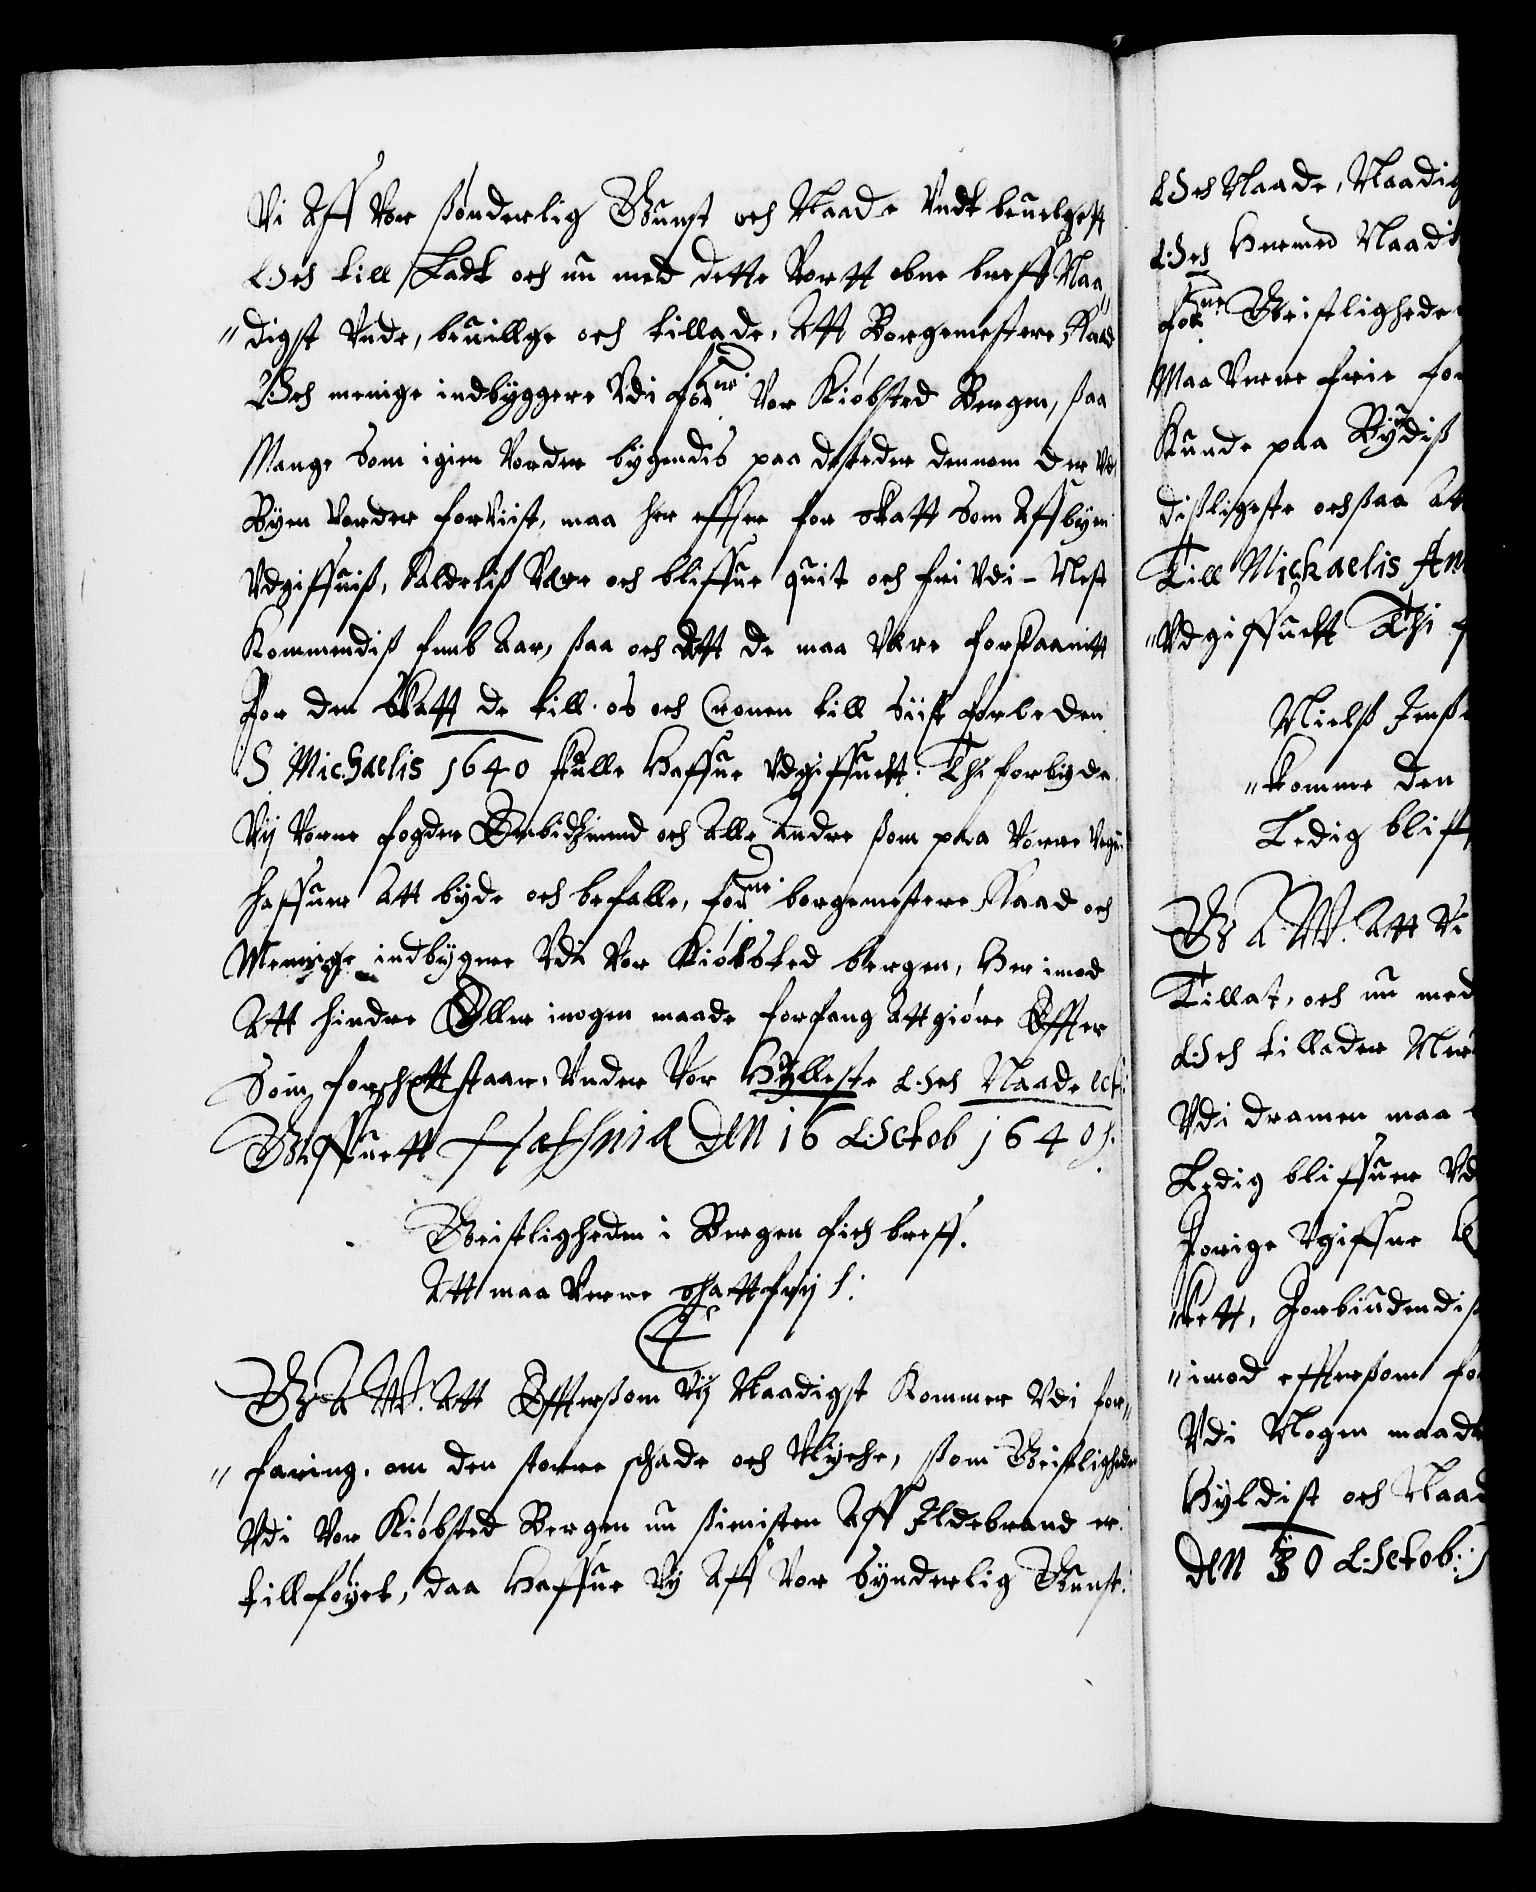 Vi Aff Vor ßønderlig Gunst och Naade Vndt beuelgeft
Och till Ladt och nu med dette Vortt obne breff Naa„
„digst Vnde, beuillge och tillade, Att Borgemestere Raad
Och menige indbyggere Vdi forne: Vor Kiøbsted Bergen, ßaa
Mange Som igien Vorder bygendis paa de steder dennom der Vd
Byen Vorder forViist, maa her effter for Skatt Som Aff byen
Vdgiffuiß, Aldeliß Være och bliffue quit och fri Vdi Nest
Kommendiß femb Aar, ßaa och Att de maa Være forskaanitt
For den Skatt de till os och Cronen till Siist forleden
S Michaelis 1640 skulle Haffue Vdgiffuett: Thi forbyde
Vij Vorre fogder Embidzmend och Alle Andre ßom paa Vorre Vegne
haffuer Att byde och befalle, forne: borgemestere Raad och
Menige indbygere Vdi Vor Kiøbsted bergen, Her imod
Att hindre Eller i nogen maade forfang Att giøre Effter
Som forschreffuitt staar, Vnder Vor Hylleste Och Naade etc:
Giffuett Hafniæ Den 16 Octob 1640.
Geistligheden i Bergen fich breff.
Att maa Verre schattfrij.
C4
G A W. Att Effterßom Vij Naadigst Kommer Vdi for„
„faring, om den storre schade och Vlyche, ßom Geistligheden
Vdi Vor Kiøbsted Bergen nu ßieniste Aff Ildebrand er
tillføyet, daa Haffue Vij Aff Vor Synderlig Gunst
Och Naade, Naadig
Och Hermed Naadi
forne Geistlighede
Maa Verre frie for
Kunde paa Bydiß
dißligeste och ßaa Att
Till Michaelis An
„Vdgiffuett Thi f
Nielß Jenß
„komme den
Ledig blif
G A W. Att Vi
Tillat, och nu med
Och tillader
Vdi dramen maa
Ledig bliffuer Vd
Forige Vgiffue
Rett, Forbiudendiß
„imod effterßom for
Vdi Nogen maade
Hyldist och Naad
Den 30 Octob: